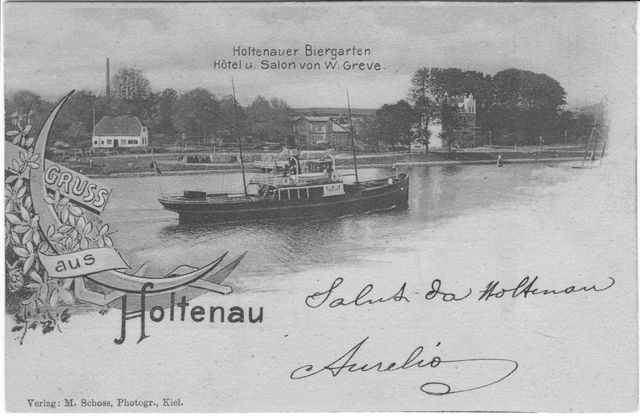 Holtenauer Biergarten
Hôtel u. Salon von W. Greve.
GRUSS
aus
Holtenau
Saluti da Holtenau
Aurelio
Verlag: M. Schoss, Photogr., Kiel.